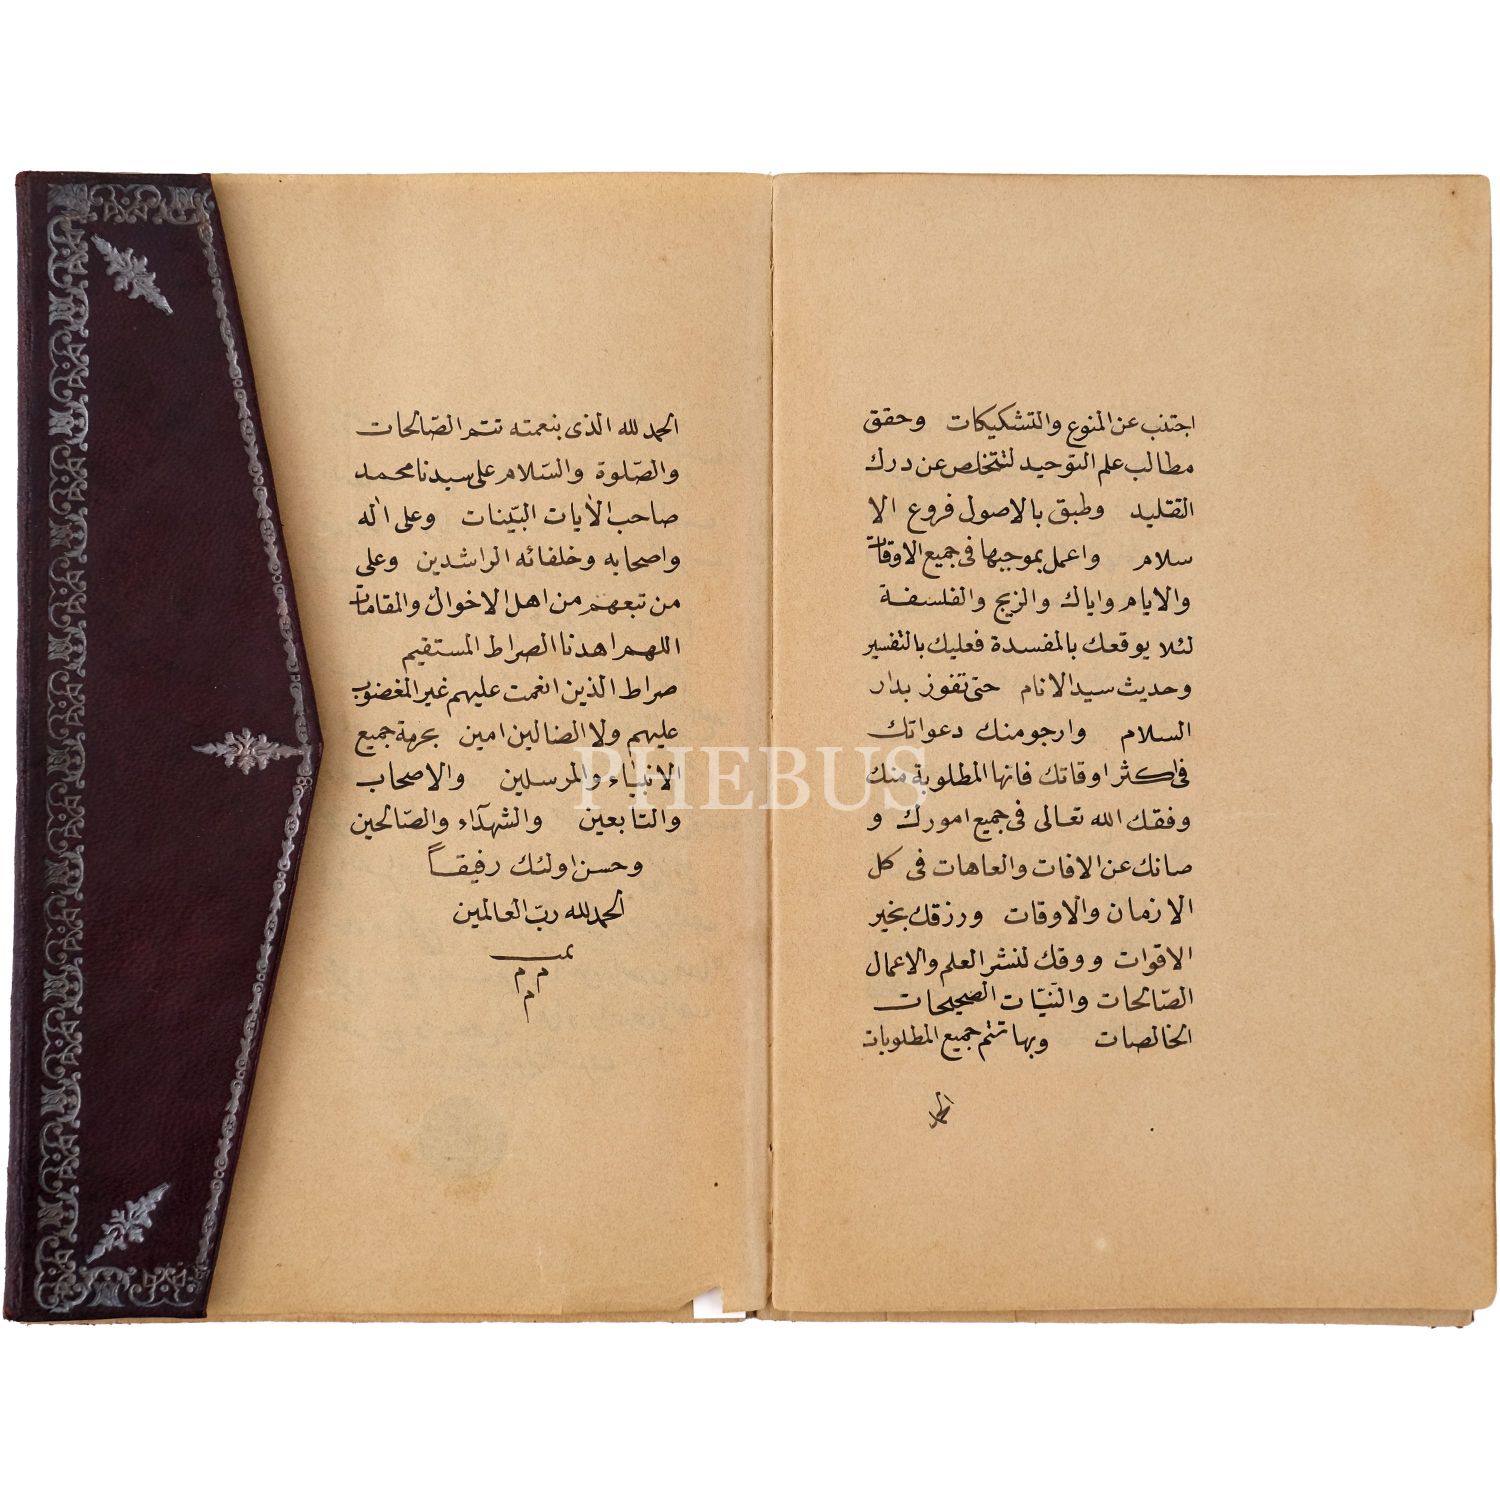 اجتنب عن المنوع والتشكيكات وحقق
مطالب علم التوحيد لتتخلص عن درك
التقليد وطبق بالاصول فروع الا
سلام واعمل بموجبها فى جميع الاوقات
والايام واياك والزيج والفلسفة
لئلا يوقعك بالمفسدة فعليك بالتفسير
وحديث سيد الانام حتى تفوز بدار
السلام وارجو منك دعواتك
فى اكثر اوقاتك فانها المطلوبة منك
وفقك الله تعالى فى جميع امورك و
صانك عن الافات والعاهات فى كل
الازمان والاوقات ورزقك بخير
الاقوات ووفك لنشر العلم والاعمال
الصّالحات والنيّات الصحيحات
الخالصات وبها تتم جميع المطلوبات
الحمد لله الذى بنعمته تتم الصّالحات
والصّلوة والسّلام على سيدنا محمد
صاحب الأيات البيّنات وعلى اله
واصحابه وخلفائه الراشدين وعلى
من تبعهم من اهل الاخوال والمقامات
اللهم اهدنا الصراط المستقيم
صراط الذين انعمت عليهم غير المغضوب
عليهم ولا الضالين امين بحرمة جميع
الانبياء والمرسلين والاصحاب
والتابعين والشهدآء والصّالحين
وحسن اولئك رفيقاً
الحمد لله ربّ العالمين
تمت
م م
م
PHEBUS